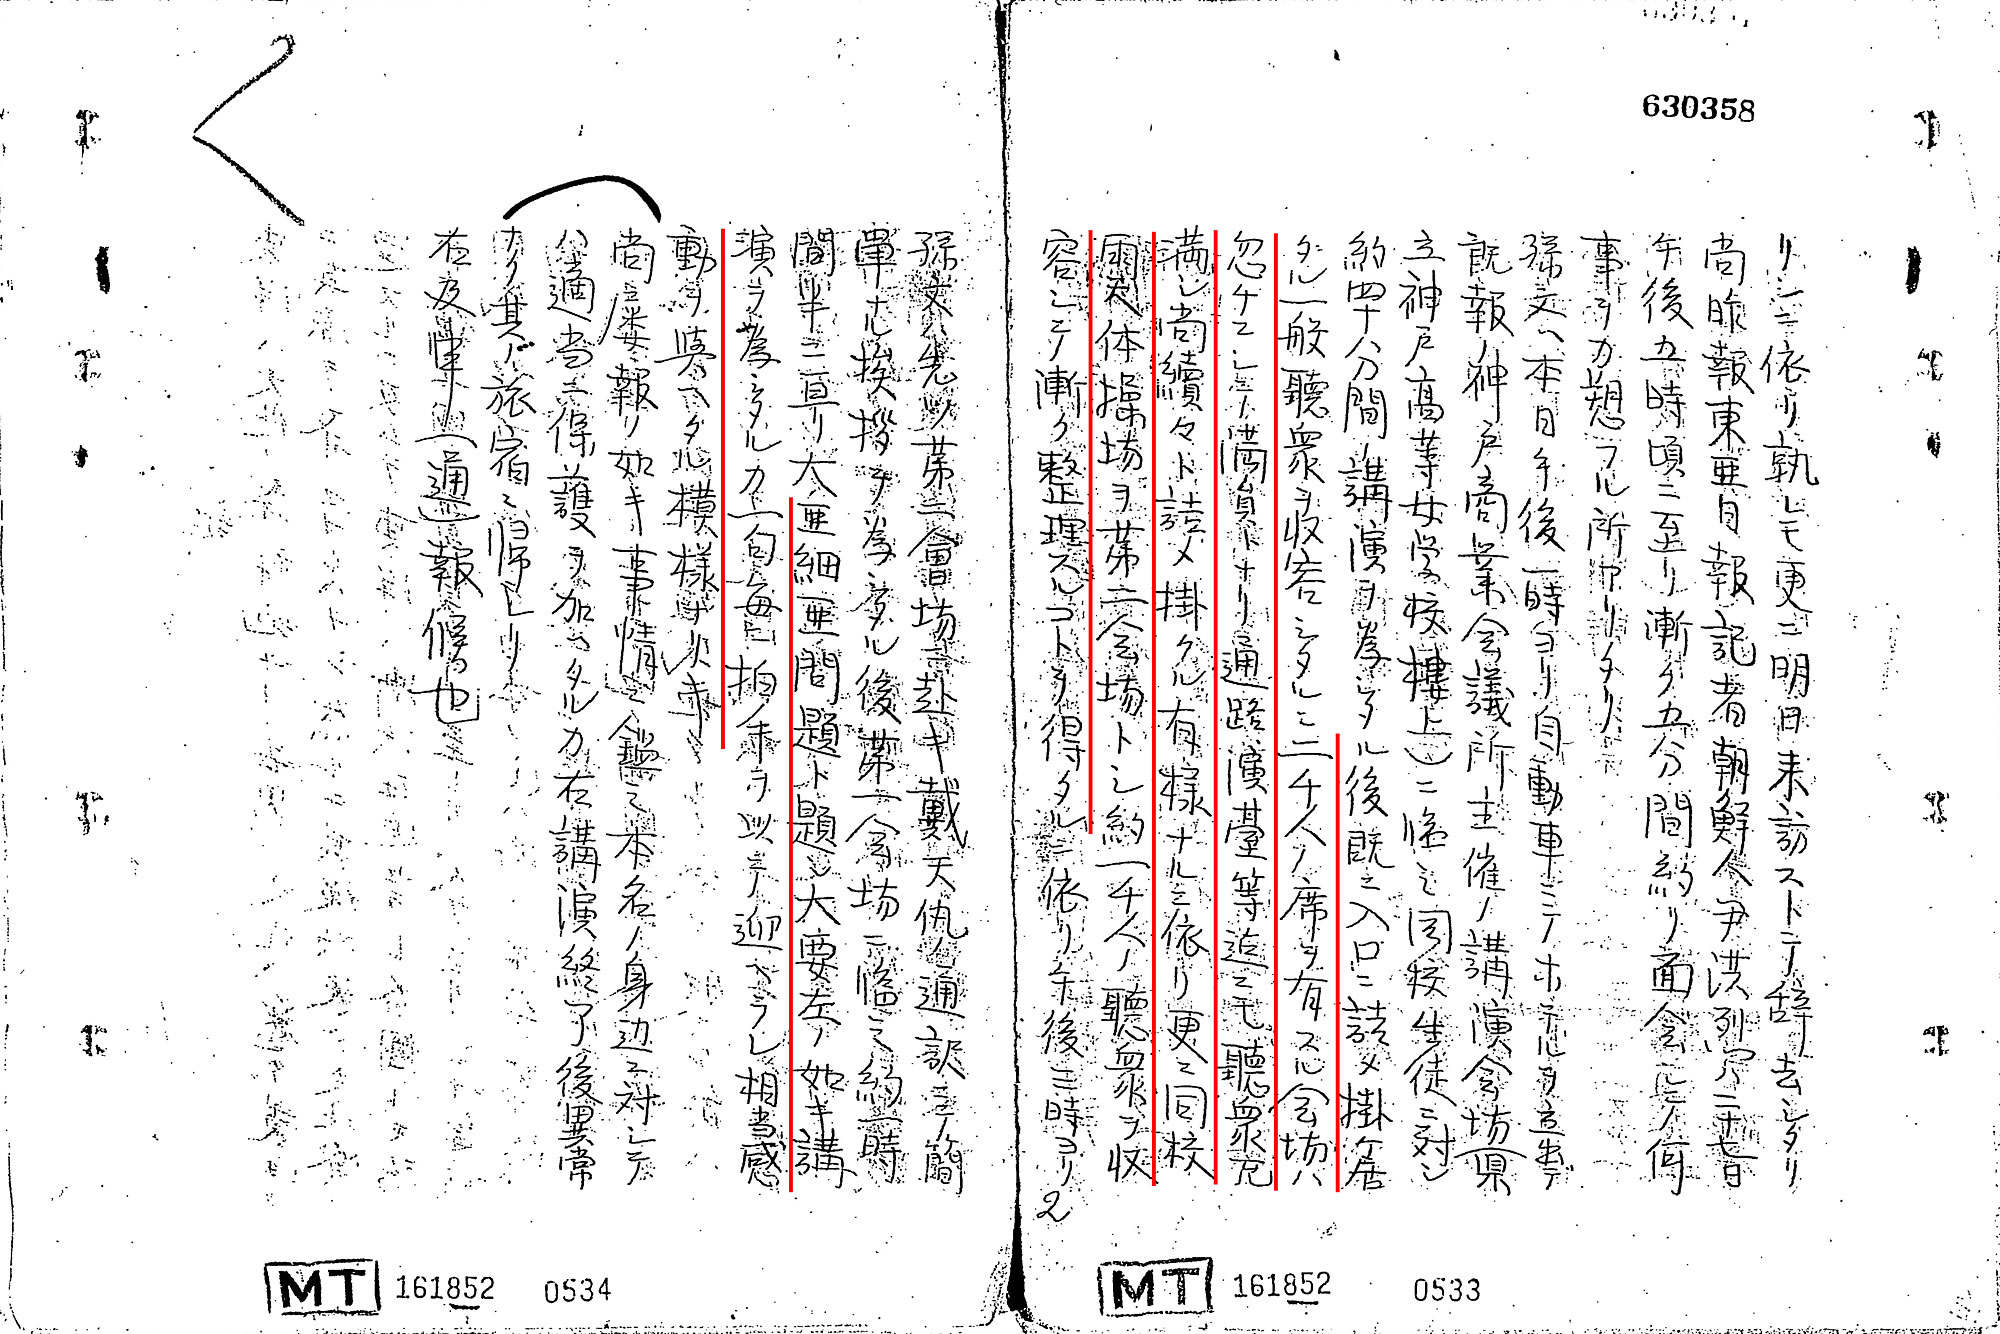 630358
リシニ依リ孰レモ更ニ明日来訪ストテ辞去シタリ
尚昨報東亜日報記者朝鮮人尹洪列ハ二十七日
午後五時頃ニ至リ漸ク五分間約リ面会シテ何
事ヲカ愬フル所アリタリ
孫文ハ本日午後一時ヨリ自動車ニテホテルヲ立出デ
既報ノ神戸商業会議所主催ノ講演会場県
立神戸高等女学校(楼上)ニ臨ミ同校生徒ニ対シ
約四十八分間ノ講演ヲ為シタル後既ニ入口ニ詰メ掛ケ居
タル一般聴衆ヲ収容シタルニ二千人ノ席ヲ有スル会場ハ
忽チニシテ満員トナリ通路演台等迄ニモ聴衆充
満シ尚続々ト詰メ掛クル有様ナルニ依リ更ニ同校
雨天体操場ヲ第二会場トシ約一千人ノ聴衆ヲ収
容シテ漸ク整理スルコトヲ得タルニ依リ午後三時ヨリ
2
MT 161852 0533
孫文ハ先ツ第二會場ニ赴キ戴天仇ノ通訳ニテ簡
単ナル挨拶ヲ為シタル後第一会場ニ臨ミ約一時
間半ニ亘リ大亜細亜問題ト題シ大要左ノ如キ講
演ヲ為シタルカ一句毎ニ拍手ヲ以テ迎ヘラレ相当感
動ヲ與ヘタル模様ナリキ
尚屡報ノ如キ事情ニ鑑ミ本名ノ身辺ニ対シテ
ハ適当ニ保護ヲ加ヘタルカ右講演終了後異常
ナク其ノ旅宿ニ帰レリ
右及申(通)報候也
MT 161852 0534